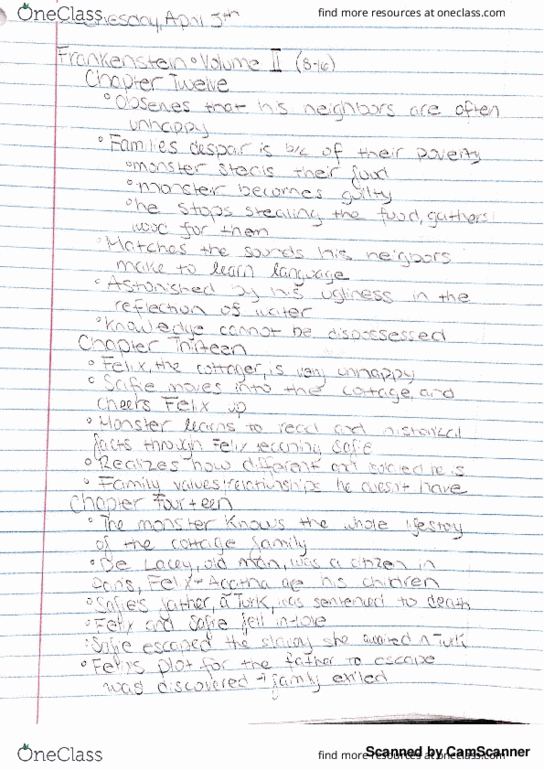 OneClass
find more resources at oneclass.com
Tuesday, April 5th
Frankenstein • Volume II (8-16)
Chapter Twelve
• Observes that his neighbors are often
unhappy
• Families despair is b/c of their poverty
• monster steals their food
• monster becomes guilty
• he stops stealing the food, gathers
wood for them
• Matches the sounds his neigbors
make to learn language
• Astonished by his ugliness in the
reflection of water
• Knowledge cannot be dispossessed
Chapter Thirteen
• Felix, the cottager, is very unhappy
• Safie moves into the cottage and
cheers Felix up
• Monster learns to read and historical
facts through Felix teaching Safie
• Realizes how different and isolated he is
• Family values/relationships he doesn't have
Chapter Fourteen
• The monster knows the whole lifestory
of the cottage family
• De Lacey, old man, was a citizen in
Paris, Felix + Agatha are his children
• Safie's father, a Turk, was sentenced to death
• Felix and Safie fell in love
• Safie escaped the slavery she Turk
• Felix's plot for the father to escape
was discovered + family exiled
OneClass
find more resources at oneclass.com
Scanned by CamScanner